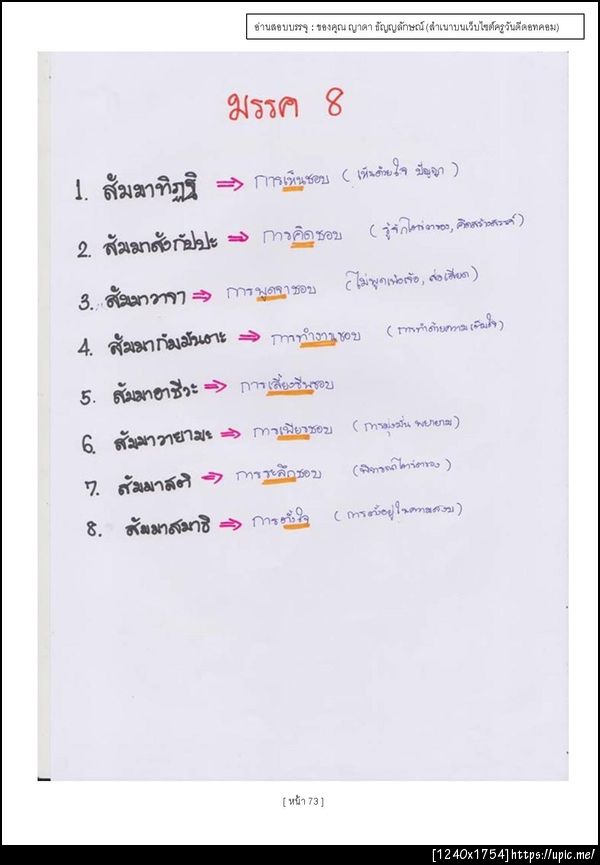 อ่านสอบบรรจุ : ของคุณ ญาดา ธัญญลักษณ์ (สำเนาบนเว็บไซต์ครูวันดีดอทคอม)
มรรค 8
1. สัมมาทิฏฐิ ⇒ การเห็นชอบ (เห็นด้วยใจ ปัญญา)
2. สัมมาสังกัปปะ ⇒ การคิดชอบ (รู้จักไตร่ตรอง, คิดสร้างสรรค์)
3. สัมมาวาจา ⇒ การพูดจาชอบ (ไม่พูดเพ้อเจ้อ, ส่อเสียด)
4. สัมมากัมมันตะ ⇒ การทำงานชอบ (การทำด้วยความเต็มใจ)
5. สัมมาอาชีวะ ⇒ การเลี้ยงชีพชอบ
6. สัมมาวายามะ ⇒ การเพียรชอบ (การมุ่งมั่น พยายาม)
7. สัมมาสติ ⇒ การระลึกชอบ (พิจารณาไตร่ตรอง)
8. สัมมาสมาธิ ⇒ การตั้งใจ (การตั้งอยู่ในความสงบ)
[ หน้า 73 ]
[1240x1754]https://upic.me/